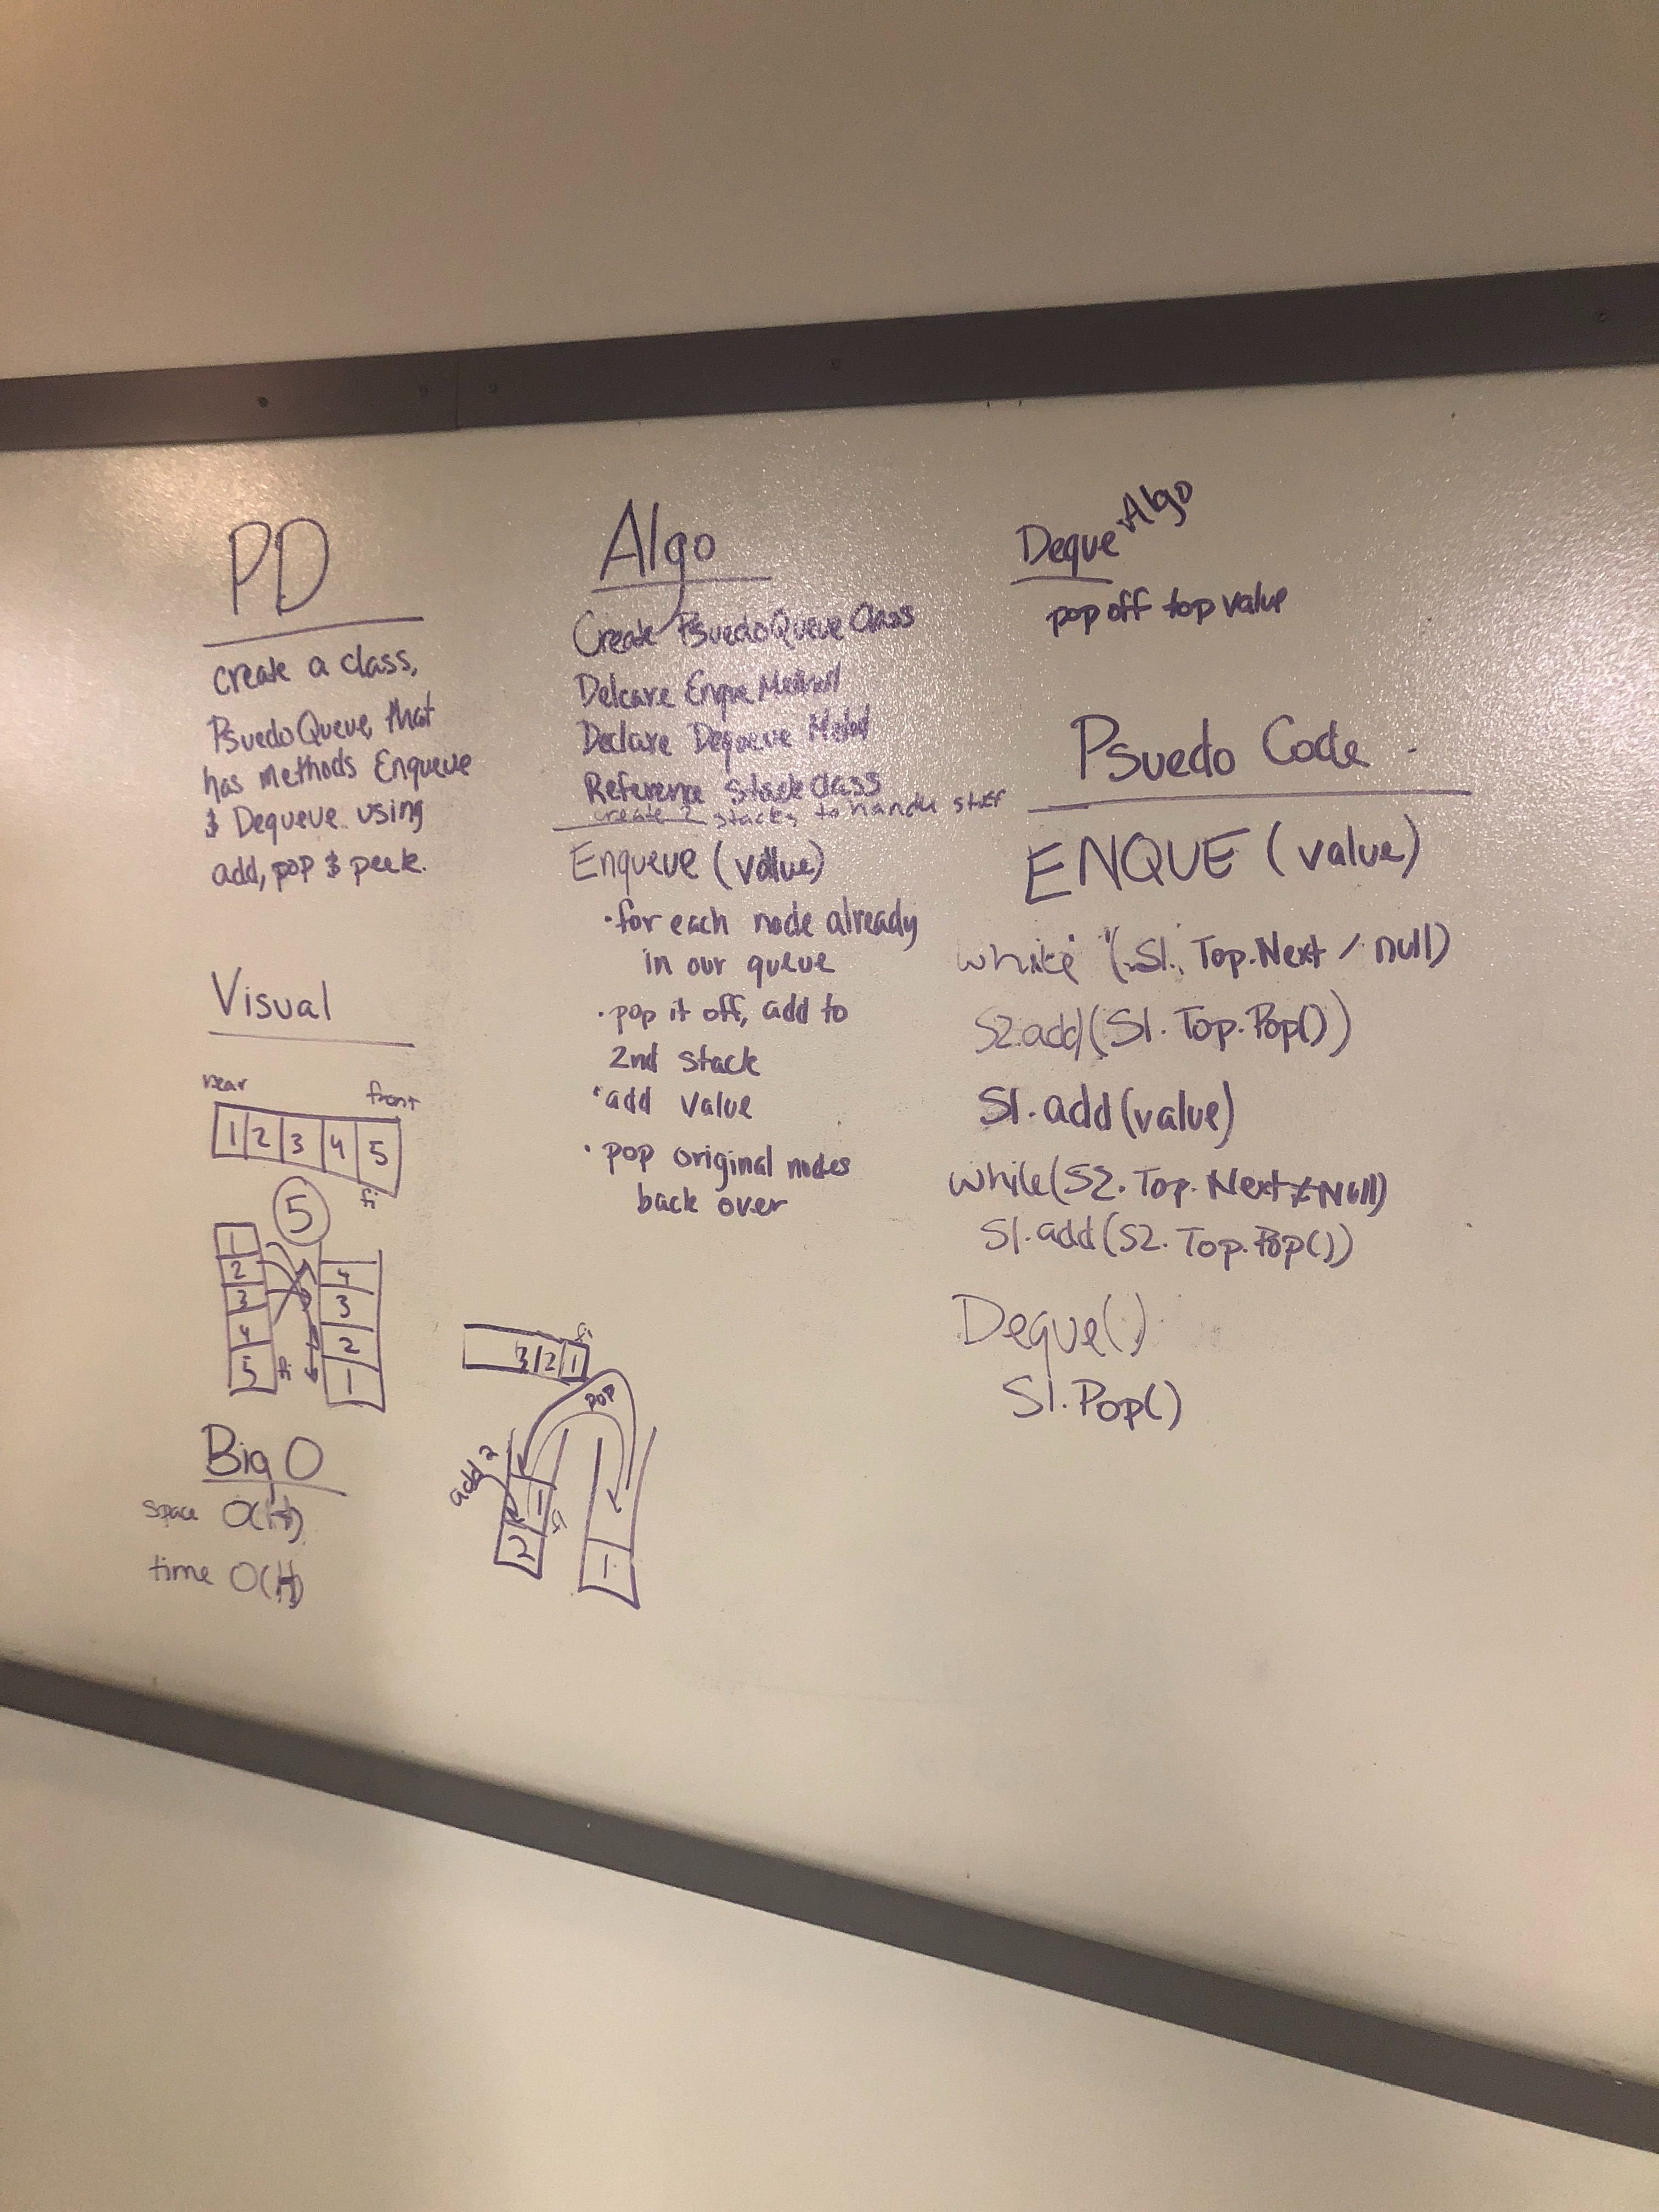 PD
create a class,
PsuedoQueue, that
has methods Enqueue
& Dequeue using
add, pop & peek.
Visual
rear front
1 2 3 4 5
5
1
2
3
4
5
4
3
2
1
Big O
space
time
Algo
Create PsuedoQueue Class
Delcare Enque Method
Declare Dequeue Method
Reference Stack class
create 2 stacks to handle stuff
Enqueue (value)
• for each node already
in our queue
• pop it off, add to
2nd stack
• add value
• pop original nodes
back over
3 2 1
pop
add 2
2 1
1
Deque Algo
pop off top value
Psuedo Code
ENQUE (value)
while (S1. Top.Next / null)
S2.add(S1. Top.Pop())
S1.add(value)
while(S2. Top. Next ≠ Null)
S1.add(S2. Top.Pop())
Deque()
S1.Pop()